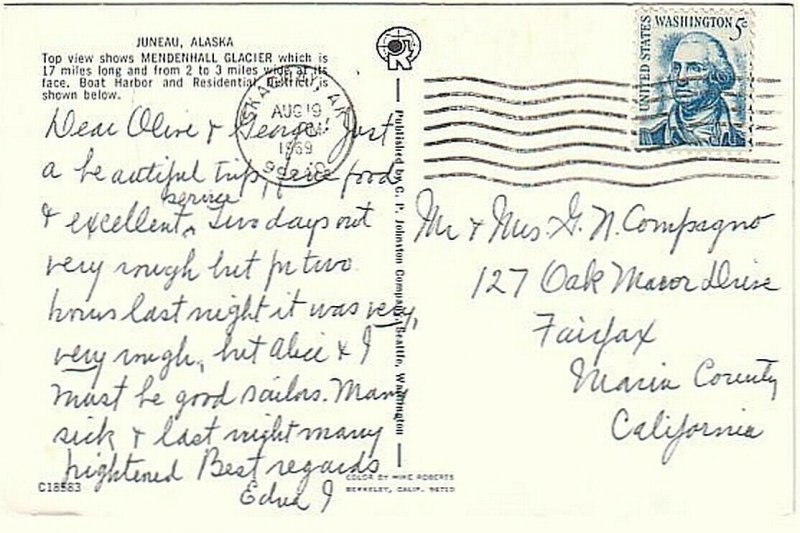 JUNEAU, ALASKA
Top view shows MENDENHALL GLACIER which is
17 miles long and from 2 to 3 miles wide at its
face. Boat Harbor and Residential District is
shown below.
Dear Olive & George, Just
a beautiful trip, fine food
service
& excellent. Two days out
very rough but for two
hours last night it was very,
very rough, but Alice & I
must be good sailors. Many
sick & last night many
frightened Best regards
Edna J
C18583
COLOR BY MIKE ROBERTS
BERKELEY, CALIF. 94710
Published by C. P. Johnston Company, Seattle, Washington
SKAGWAY, AK.
AUG 19
PM
1969
UNITED STATES
WASHINGTON 5c
Mr & Mrs. G. N. Compagno
127 Oak Manor Drive
Fairfax
Marin County
California